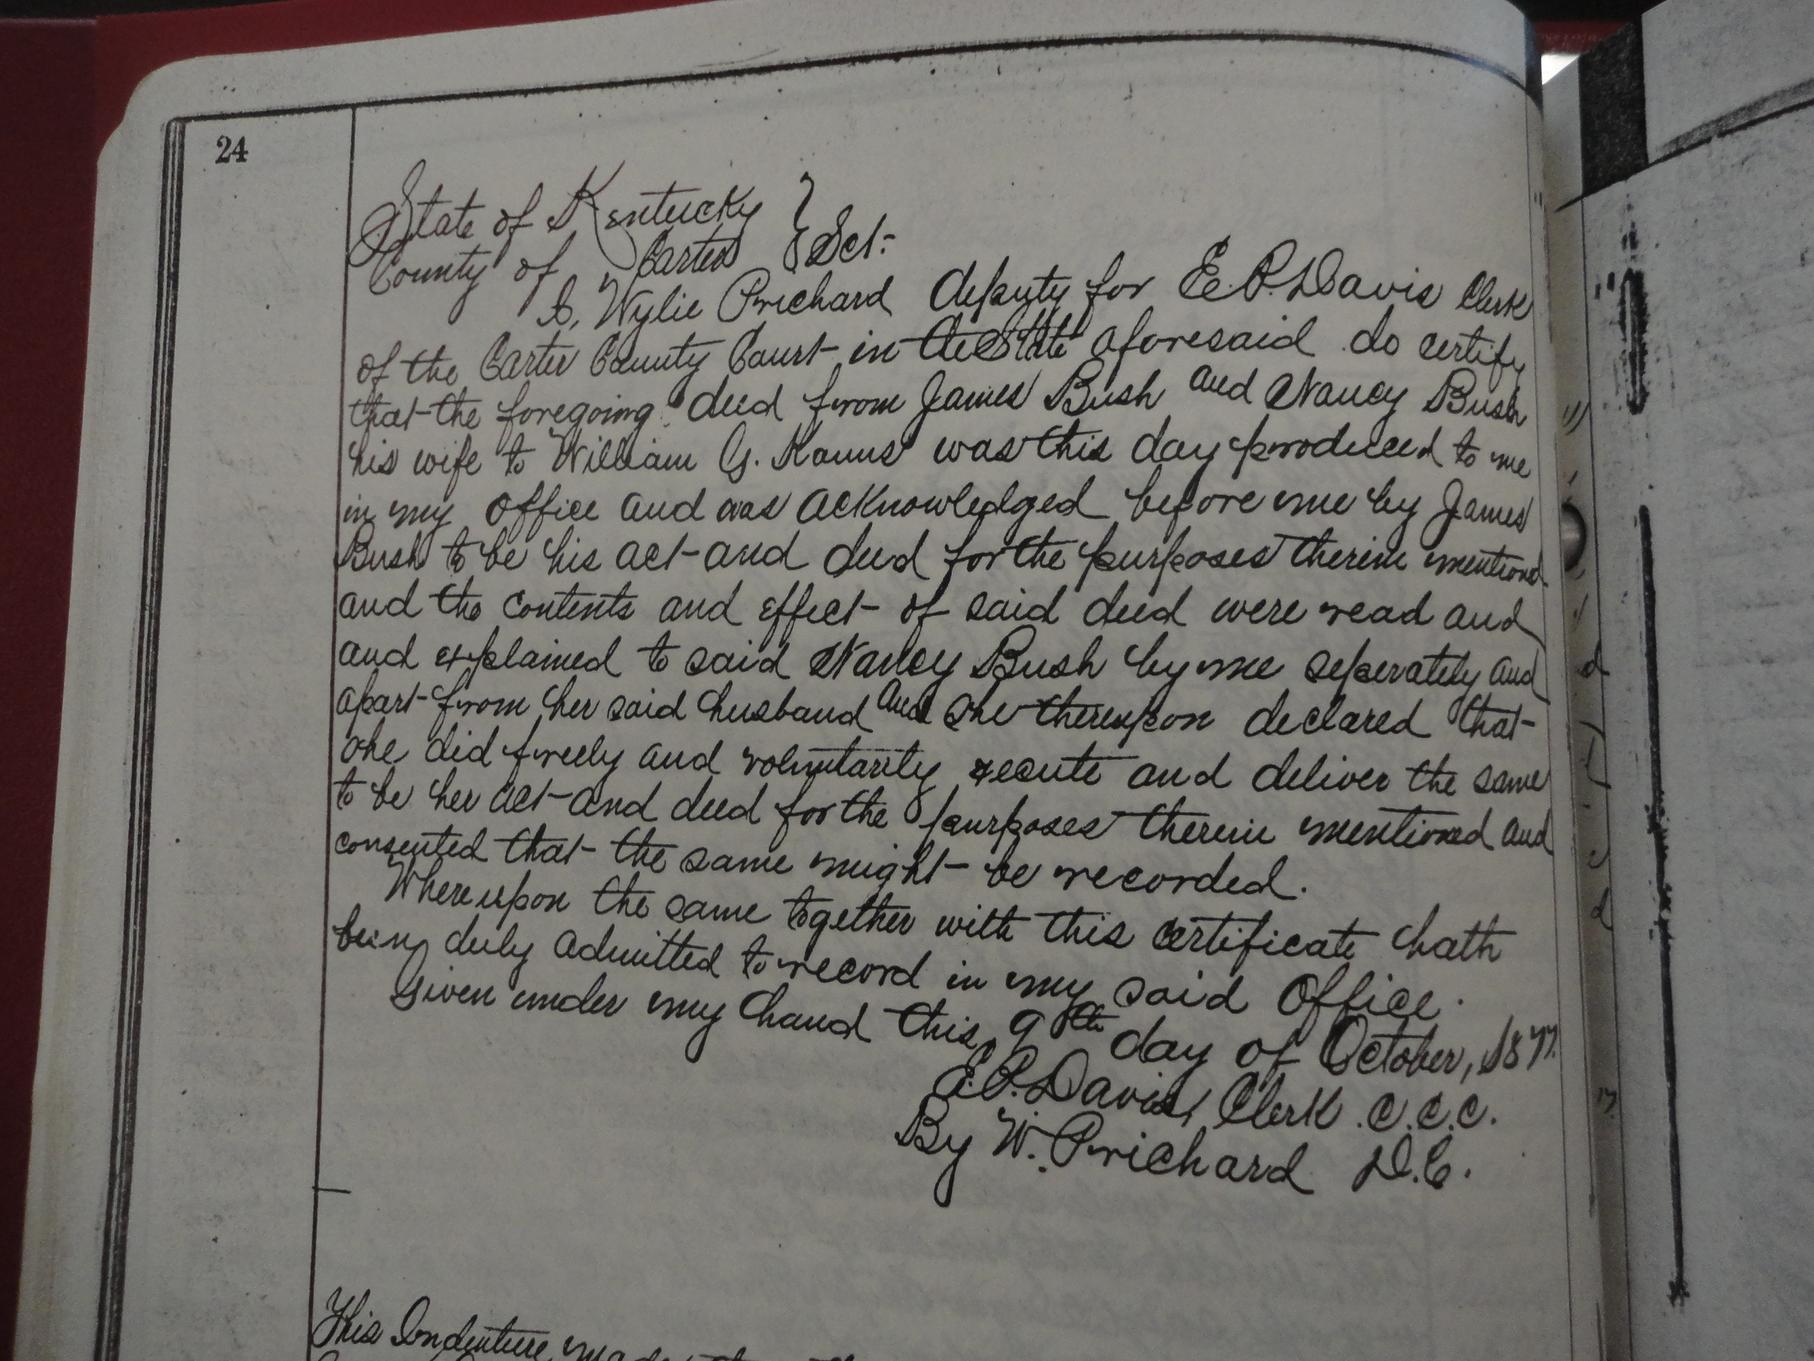 24
State of Kentucky }
County of Carter } Sct.
I, Wylie Prichard deputy for E. P. Davis Clerk
of the Carter County Court in the State aforesaid do certify
that the foregoing deed from James Bush and Nancy Bush
his wife to William G. Kouns was this day produced to me
in my office and was acknowledged before me by James
Bush to be his act and deed for the purposes therein mentioned
and the contents and effect of said deed were read and
and explained to said Nancy Bush by me seperately and
apart from her said husband and she thereupon declared that
she did freely and voluntarily execute and deliver the same
to be her act and deed for the purposes therein mentioned and
consented that the same might be recorded.
Whereupon the same together with this certificate hath
being duly admitted to record in my said office.
Given under my hand this 9th day of October, 1877.
E. P. Davis, Clerk C.C.C.
By W. Prichard D.C.
This Indenture, made